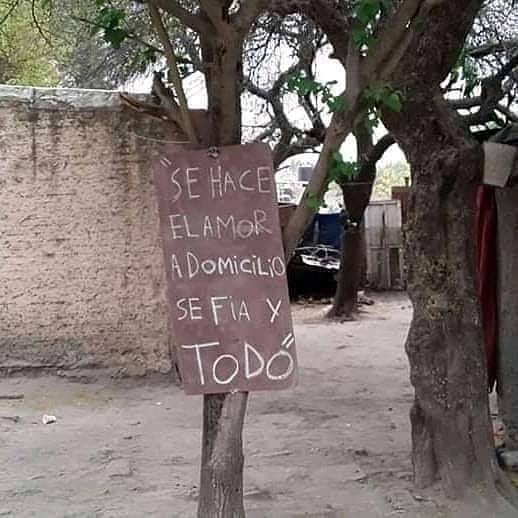 "SE HACE
EL AMOR
A DOMICILIO
SE FIA Y
TODO"